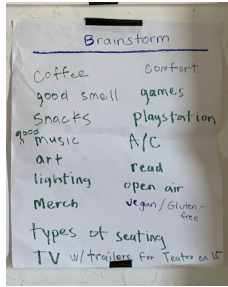 Brainstorm
coffee
good smell
snacks
good music
art
lighting
Merch
comfort
games
playstation
A/C
read
open air
vegan/Gluten-
free
types of seating
TV w/trailers For Teatro en 15